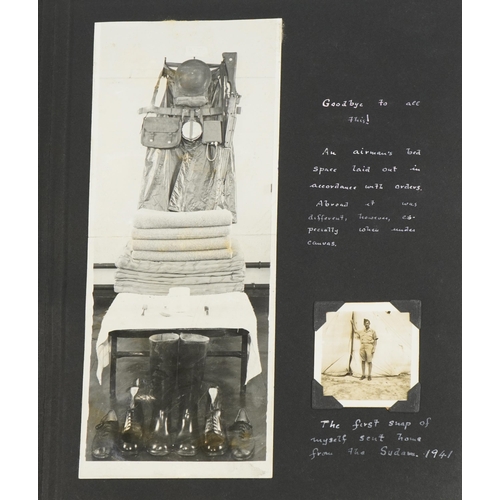 Goodbye to all
this!
An airman's bed
space laid out in
accordance with orders.
Abroad it was
different, however, es-
pecially when under
canvas.
The first snap of
myself sent home
from the Sudan. 1941